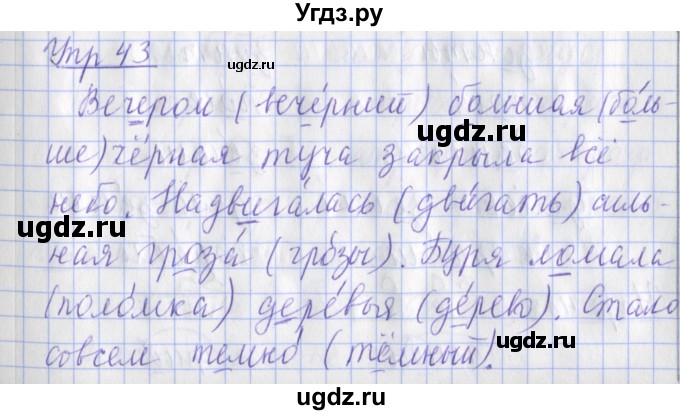 Угдз.ру
Упр 43
Вечером (вече́рний) большая (бо́ль-
ше) чёрная туча закрыла всё
небо. Надвига́лась (дви́гать) силь-
ная гроза́ (гро́зы). Буря ломала
(поло́мка) дере́вья (де́рево). Стало
совсем темно́ (тёмный).
ugdz.ru
ugdz.ru
ugdz.ru
ugdz.ru
ugdz.ru
ugdz.ru
ugdz.ru
ugdz.ru
ugdz.ru
ugdz.ru